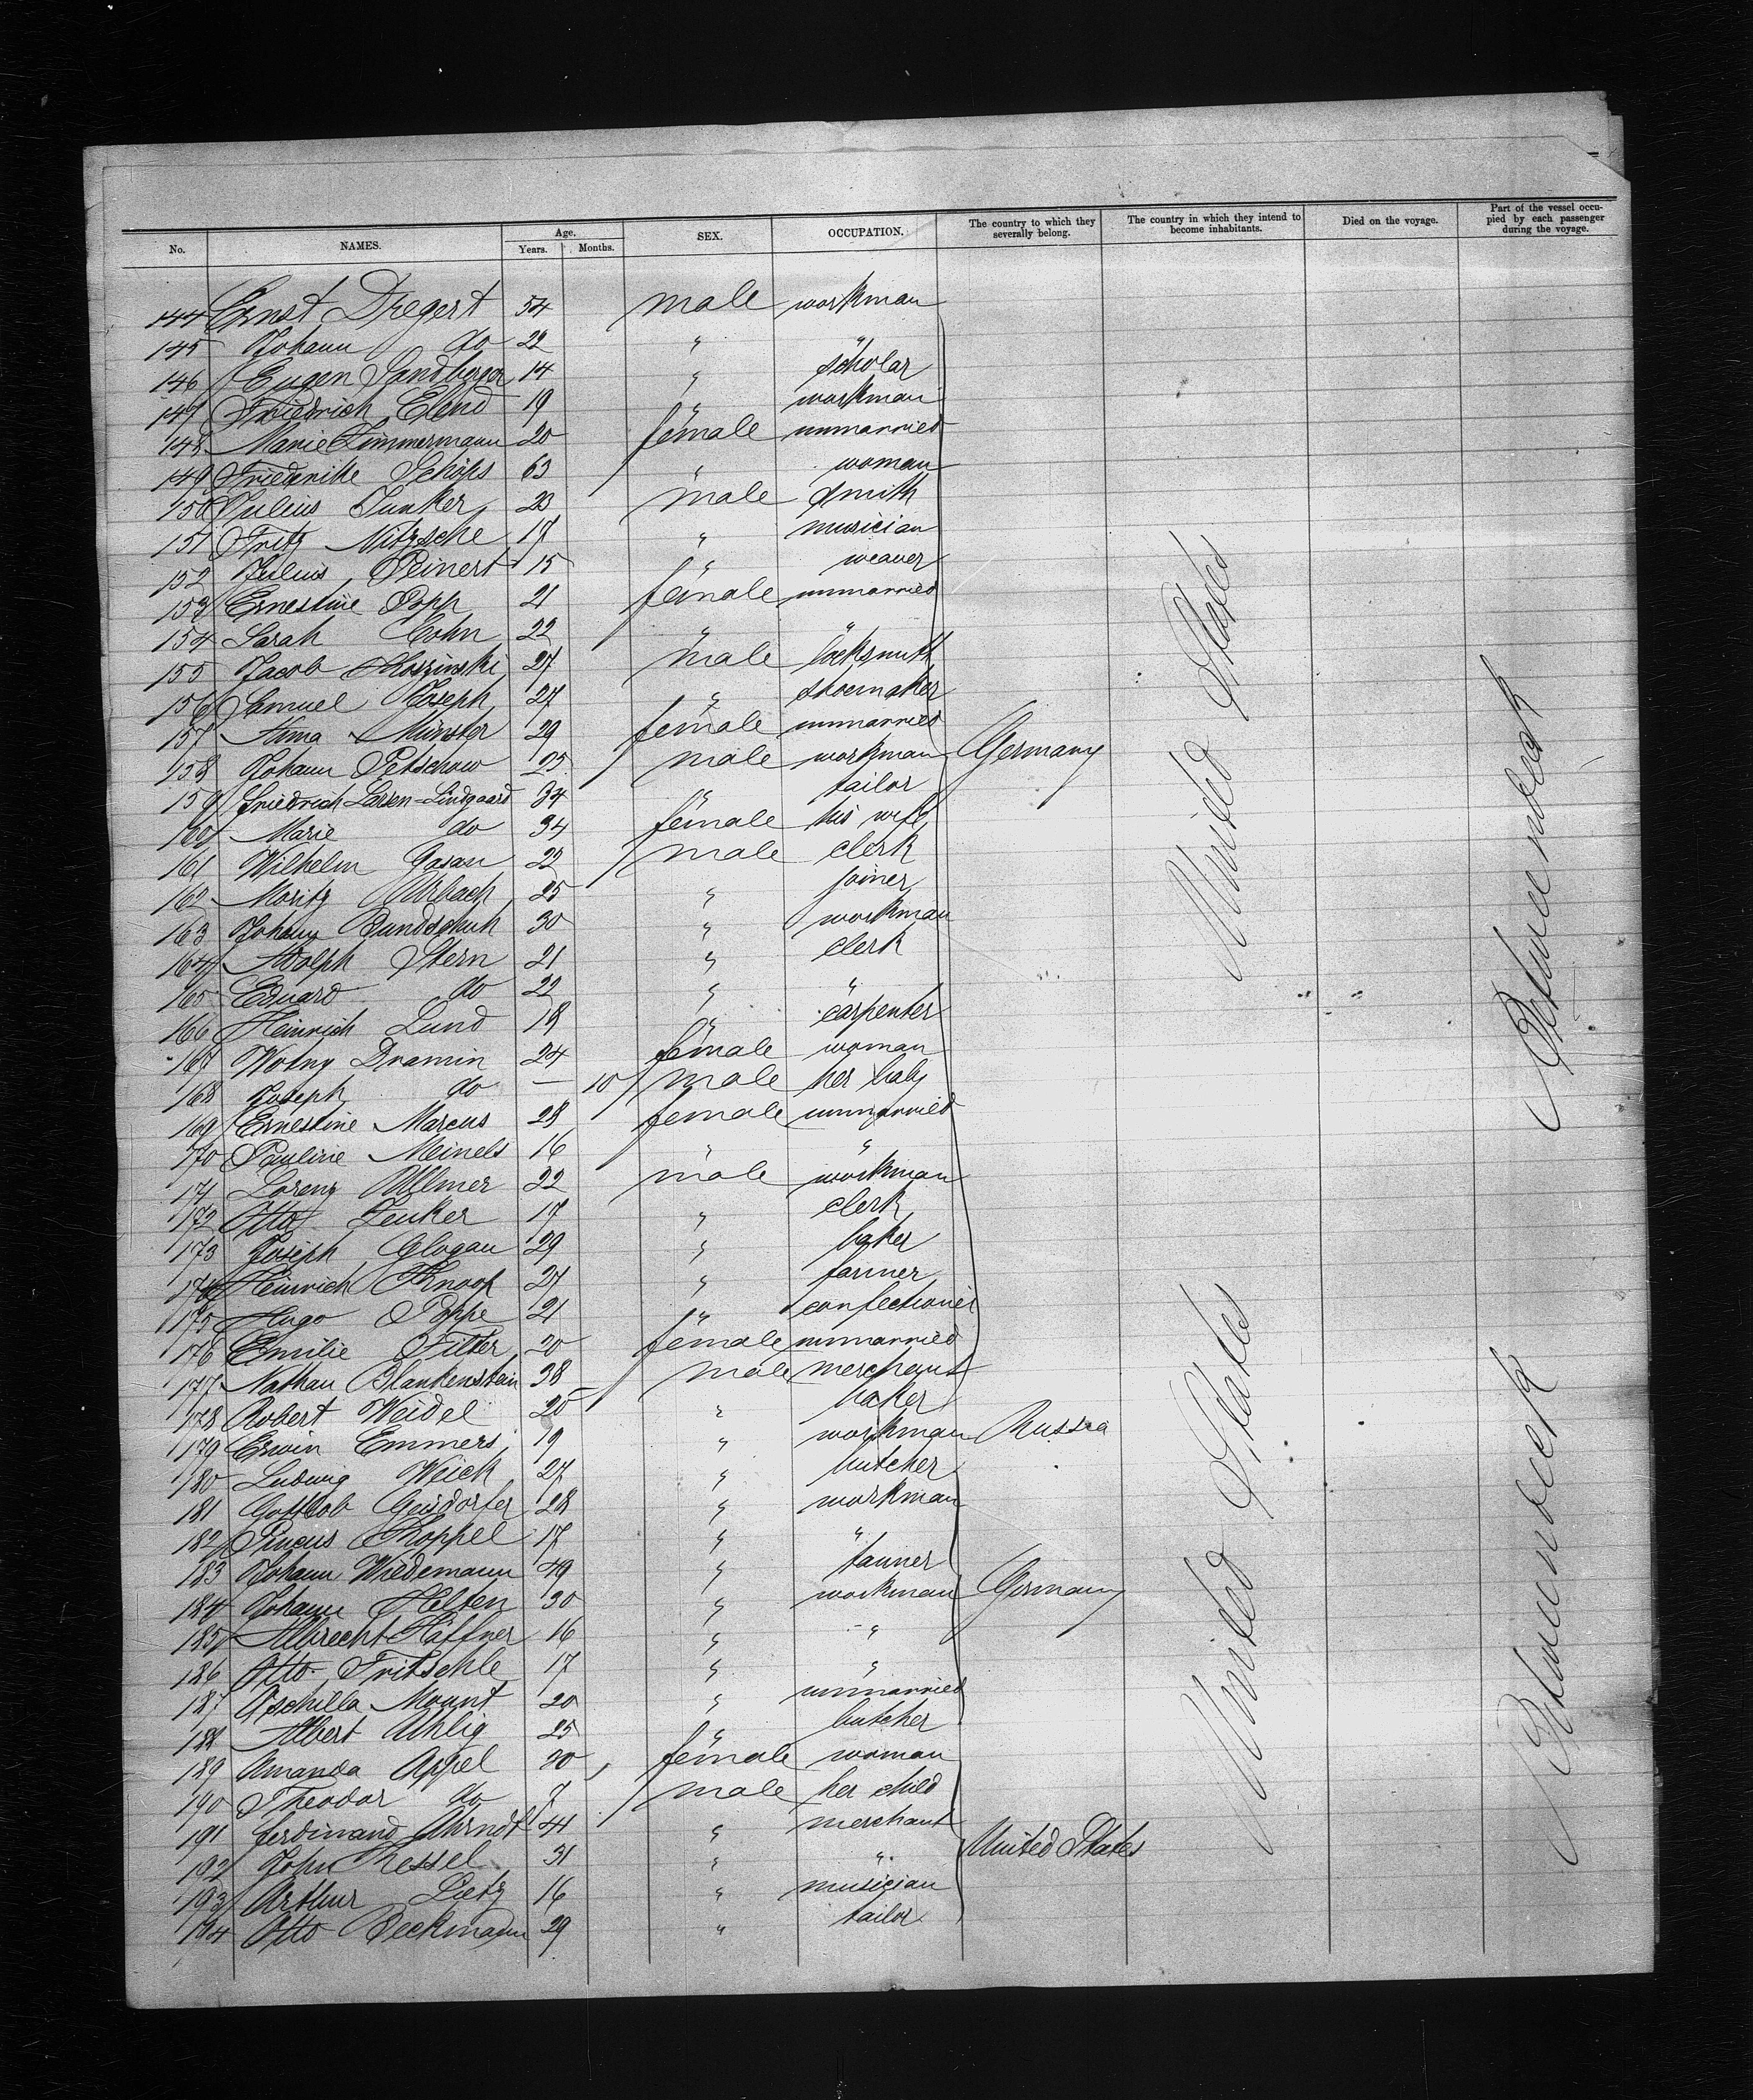 No. NAMES. Age. Years. Months. SEX. OCCUPATION. The country to which they severally belong. The country in which they intend to become inhabitants. Died on the voyage. Part of the vessel occupied by each passenger during the voyage.
144 Ernst Dregert 54 male workman
145 Johann do 22 " "
146 Eugen Sandberger 14 " scholar
147 Friedrich Elend 19 " workman
148 Marie Zimmermann 20 female unmarried
149 Friederike Schöps 63 " woman
150 Julius Junker 23 male smith
151 Fritz Nitzsche 17 " musician
152 Julius Peinert 15 " weaver
153 Ernestine Popp 21 female unmarried
154 Sarah Cohn 22 " "
155 Jacob 27 male locksmith
156 Samuel Joseph 27 " shoemaker
157 Anna Münster 29 female unmarried
158 Johann Petschow 25 male workman Germany
159 Friedrich Larsen-Lindgaard 34 " tailor
160 Marie do 34 female his wife
161 Wilhelm 22 male clerk
162 Moritz Urbach 25 " joiner
163 Johann Bundschuh 30 " workman
164 Adolph Stern 21 " clerk
165 Eduard do 22 " "
166 Heinrich Lund 18 " carpenter
167 Dramin 24 female woman
168 Joseph do — 10 male her baby
169 Ernestine Marcus 28 female unmarried
170 Pauline Meinels 16 " "
171 Lorenz Ullmer 22 male workman
172 Otto Zenker 17 " clerk
173 Joseph Glogau 29 " baker
174 Heinrich Knoop 27 " farmer
175 Hugo Poppe 21 " confectioner
176 Emilie Filter 20 female unmarried
177 Nathan Blankenstein 38 male merchant
178 Robert Weidel 25 " baker
179 Erwin Emmers 19 " workman Russia
180 Ludwig Weick 27 " butcher
181 Gottlob Geisdorfer 28 " workman
182 Pincus Koppel 17 " "
183 Johann Wiedemann 49 " tanner
184 Johann Helten 30 " workman Germany
185 Albrecht Häffner 16 " "
186 Otto Fritschle 17 " "
187 Mount 20 " unmarried
188 Albert Uhlig 25 " butcher
189 Amanda Appel 20 female woman
190 Theodor do 7 male her child
191 Ferdinand Ahrndt 41 " merchant
192 John Kessel 31 " " United States
193 Arthur Lietz 16 " musician
194 Otto Beckmann 29 " tailor
United States
United States